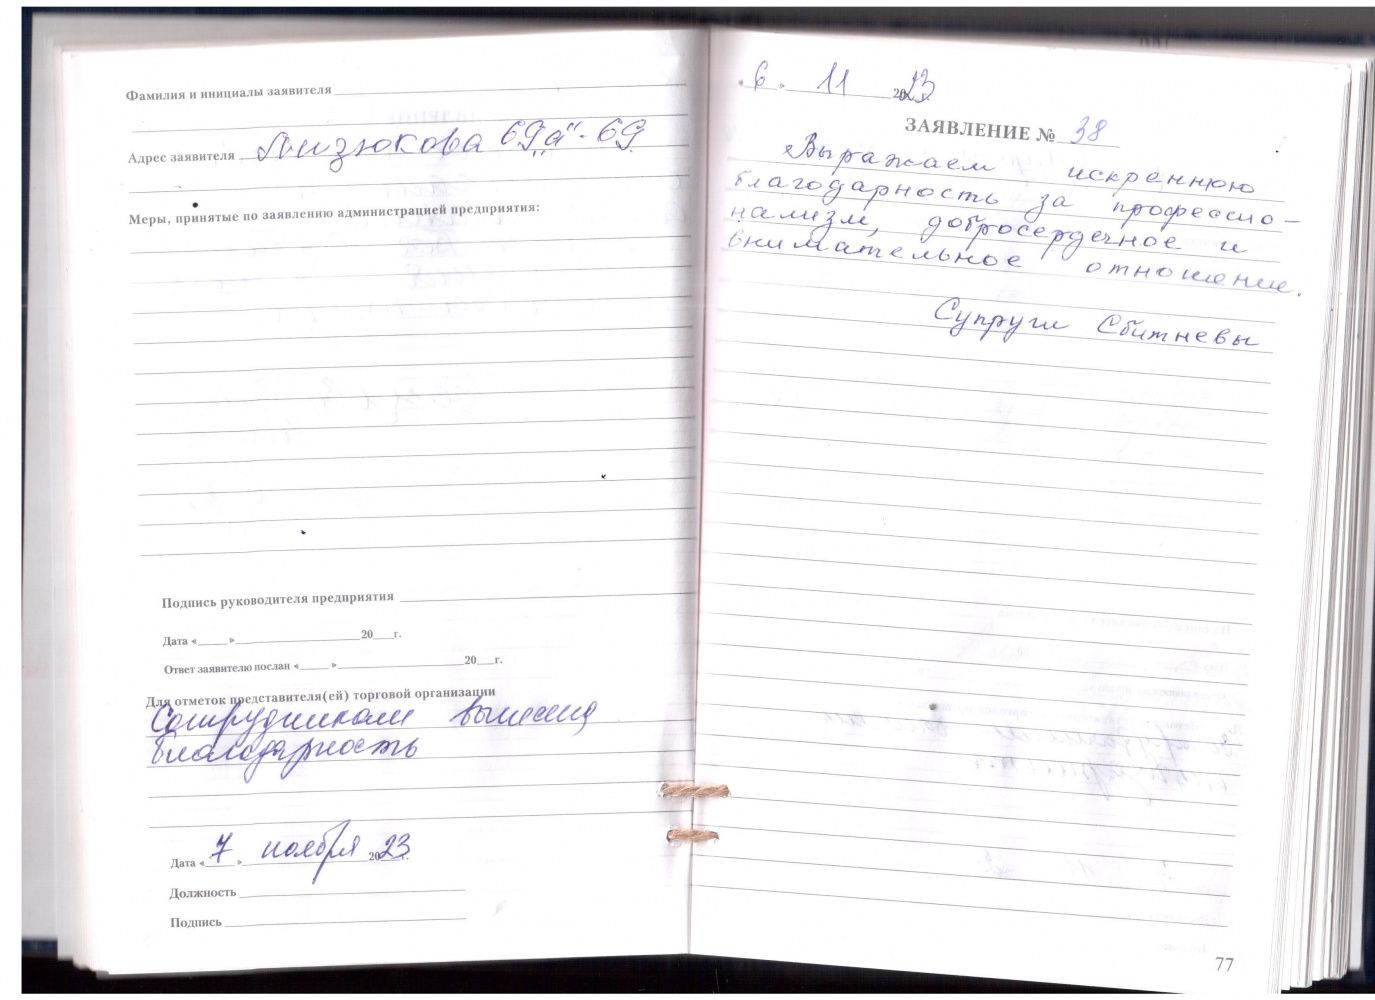 Фамилия и инициалы заявителя
Адрес заявителя Лизюкова 69„а“-69
Меры, принятые по заявлению администрацией предприятия:
Подпись руководителя предприятия
Дата « » 20 г.
Ответ заявителю послан « » 20 г.
Для отметок представителя(ей) торговой организации
Сотрудникам вынесена
благодарность
Дата « 7 » ноября 2023 г.
Должность
Подпись
« 6 » 11 2023 г.
ЗАЯВЛЕНИЕ № 38
Выражаем искреннюю
благодарность за профессио-
нализм, добросердечное и
внимательное отношение.
Супруги Сбитневы
77